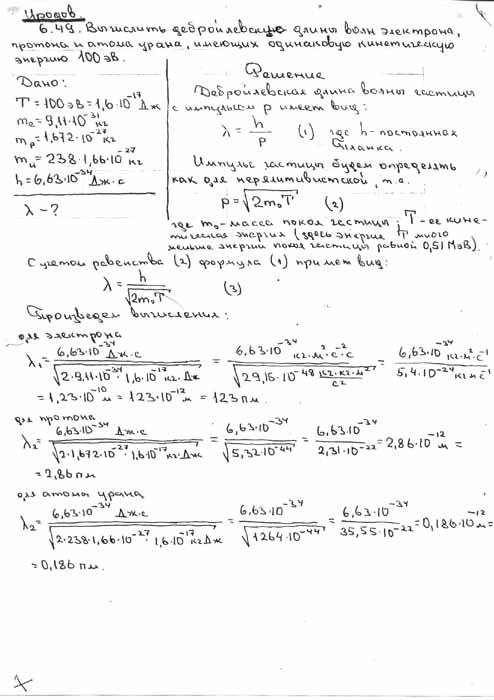 Иродов.
6.49. Вычислить дебройлевскую длины волн электрона,
протона и атома урана, имеющих одинаковую кинетическую
энергию 100 эВ.
Дано:
T = 100 эВ = 1,6·10⁻¹⁷ Дж
mₑ = 9,11·10⁻³¹ кг
mₚ = 1,672·10⁻²⁷ кг
mᵤ = 238·1,66·10⁻²⁷ кг
h = 6,63·10⁻³⁴ Дж·с
λ - ?
Решение
Дебройлевская длина волны частицы
с импульсом p имеет вид:
λ = h/p (1) где h - постоянная
Планка.
Импульс частицы будем определять
как для нерелятивистской, т.е.
p = √(2m₀T) (2)
где m₀ - масса покоя частицы; T - ее кине-
тическая энергия (здесь энергия T много
меньше энергии покоя частицы равной 0,51 МэВ).
С учетом равенства (2) формула (1) примет вид:
λ = h/√(2m₀T) (3)
Произведем вычисления:
для электрона
λ₁ = 6,63·10⁻³⁴ Дж·с/√(2·9,11·10⁻³¹·1,6·10⁻¹⁷ кг·Дж) = 6,63·10⁻³⁴ кг·м²·с⁻²·с/√(29,15·10⁻⁴⁸ кг·кг·м²/с²) = 6,63·10⁻³⁴ кг·м²·с⁻¹/5,4·10⁻²⁴ кг·м·с⁻¹
= 1,23·10⁻¹⁰ м = 123·10⁻¹² м = 123 пм.
для протона
λ₂ = 6,63·10⁻³⁴ Дж·с/√(2·1,672·10⁻²⁷·1,6·10⁻¹⁷ кг·Дж) = 6,63·10⁻³⁴/√(5,32·10⁻⁴⁴) = 6,63·10⁻³⁴/2,31·10⁻²² = 2,86·10⁻¹² м =
= 2,86 пм
для атома урана
λ₂ = 6,63·10⁻³⁴ Дж·с/√(2·238·1,66·10⁻²⁷·1,6·10⁻¹⁷ кг Дж) = 6,63·10⁻³⁴/√(1264·10⁻⁴⁴) = 6,63·10⁻³⁴/35,55·10⁻²² = 0,186·10⁻¹² м =
= 0,186 пм.